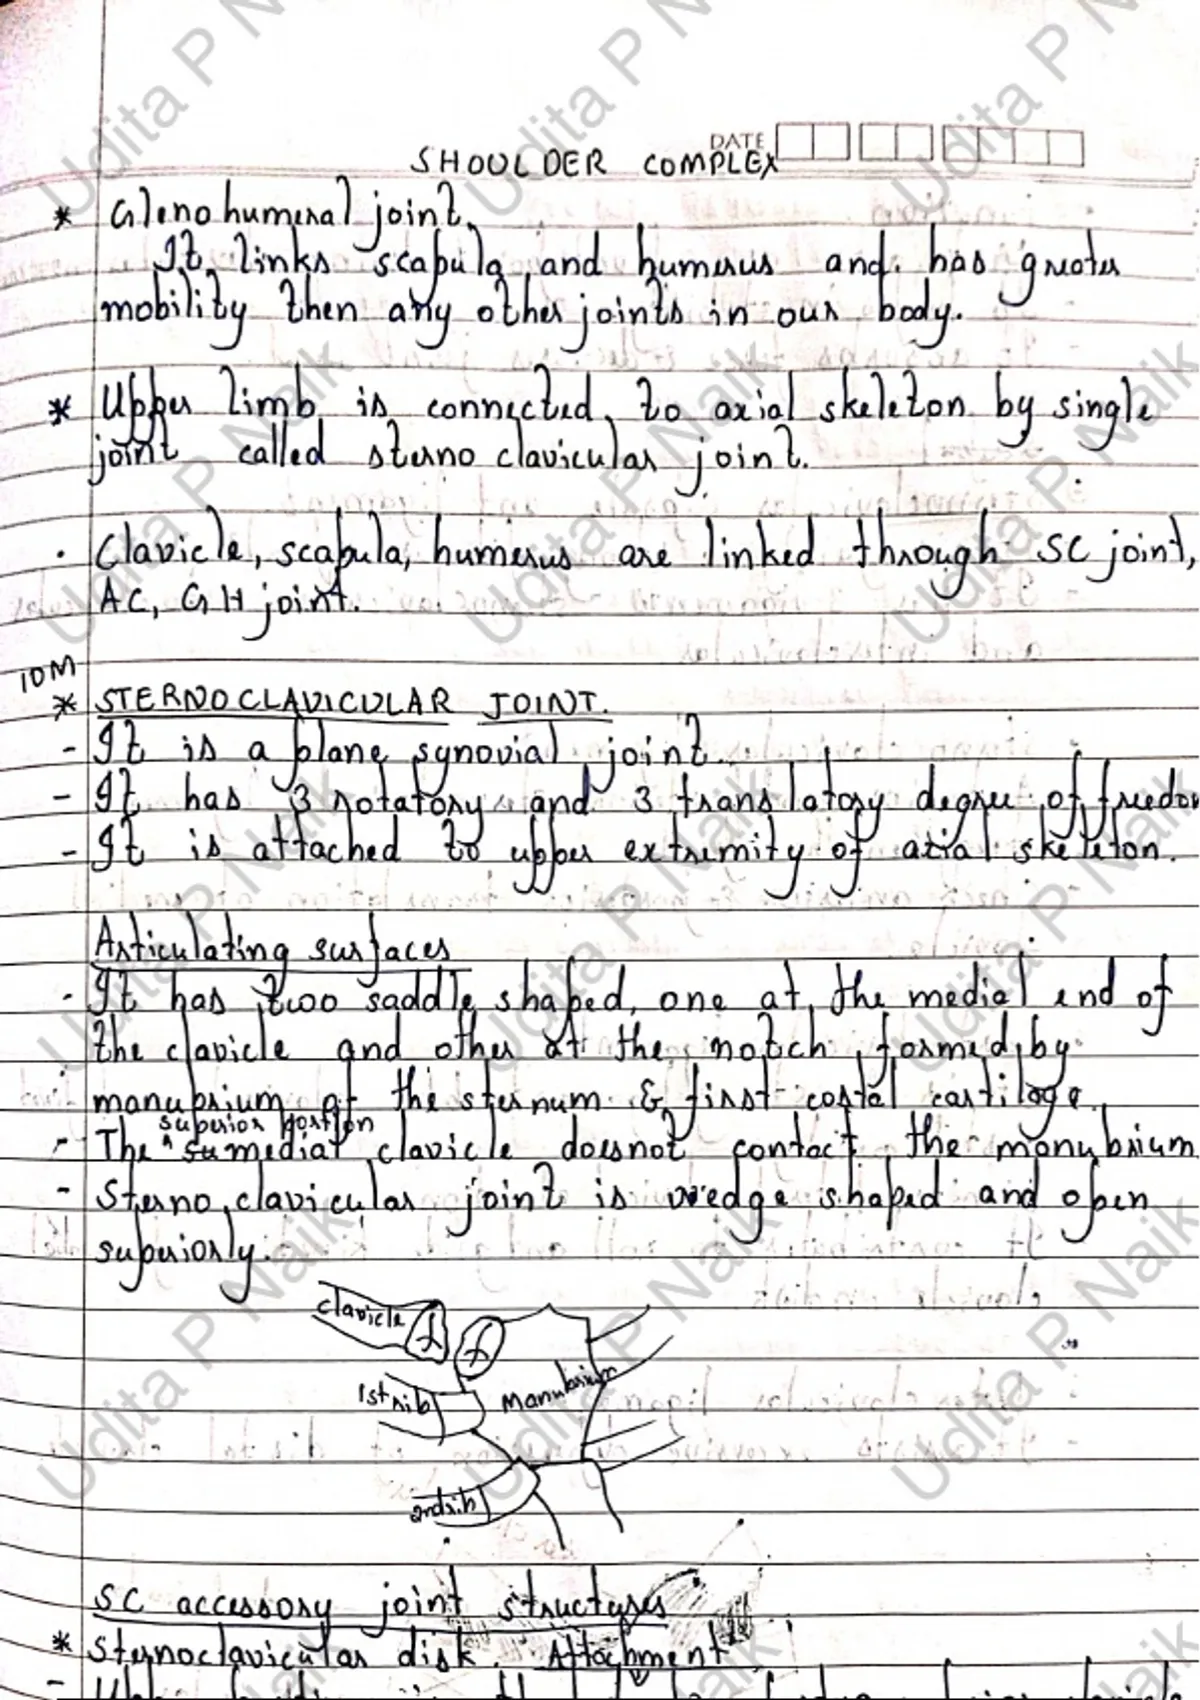 DATE
SHOULDER COMPLEX
* Glenohumeral joint.
It links scapula and humerus and has greater
mobility then any other joints in our body.
* Upper limb is connected to axial skeleton by single
joint called sterno clavicular joint.
. Clavicle, scapula, humerus are linked through SC joint,
AC, GH joint.
10M
* STERNOCLAVICULAR JOINT.
- It is a plane synovial joint.
- It has 3 rotatory and 3 translatory degree of freedom
- It is attached to upper extremity of axial skeleton.
Articulating surfaces
- It has two saddle shaped, one at the medial end of
the clavicle and other at the notch formed by
manubrium of the sternum & first costal cartilage.
superior portion
- The medial clavicle doesnot contact the manubrium
- Sterno clavicular joint is wedge shaped and open
superiorly.
clavicle
1st rib
Manubrium
2nd rib
SC accessory joint structures
* Sternoclavicular disk. Attachment
Udita P Naik